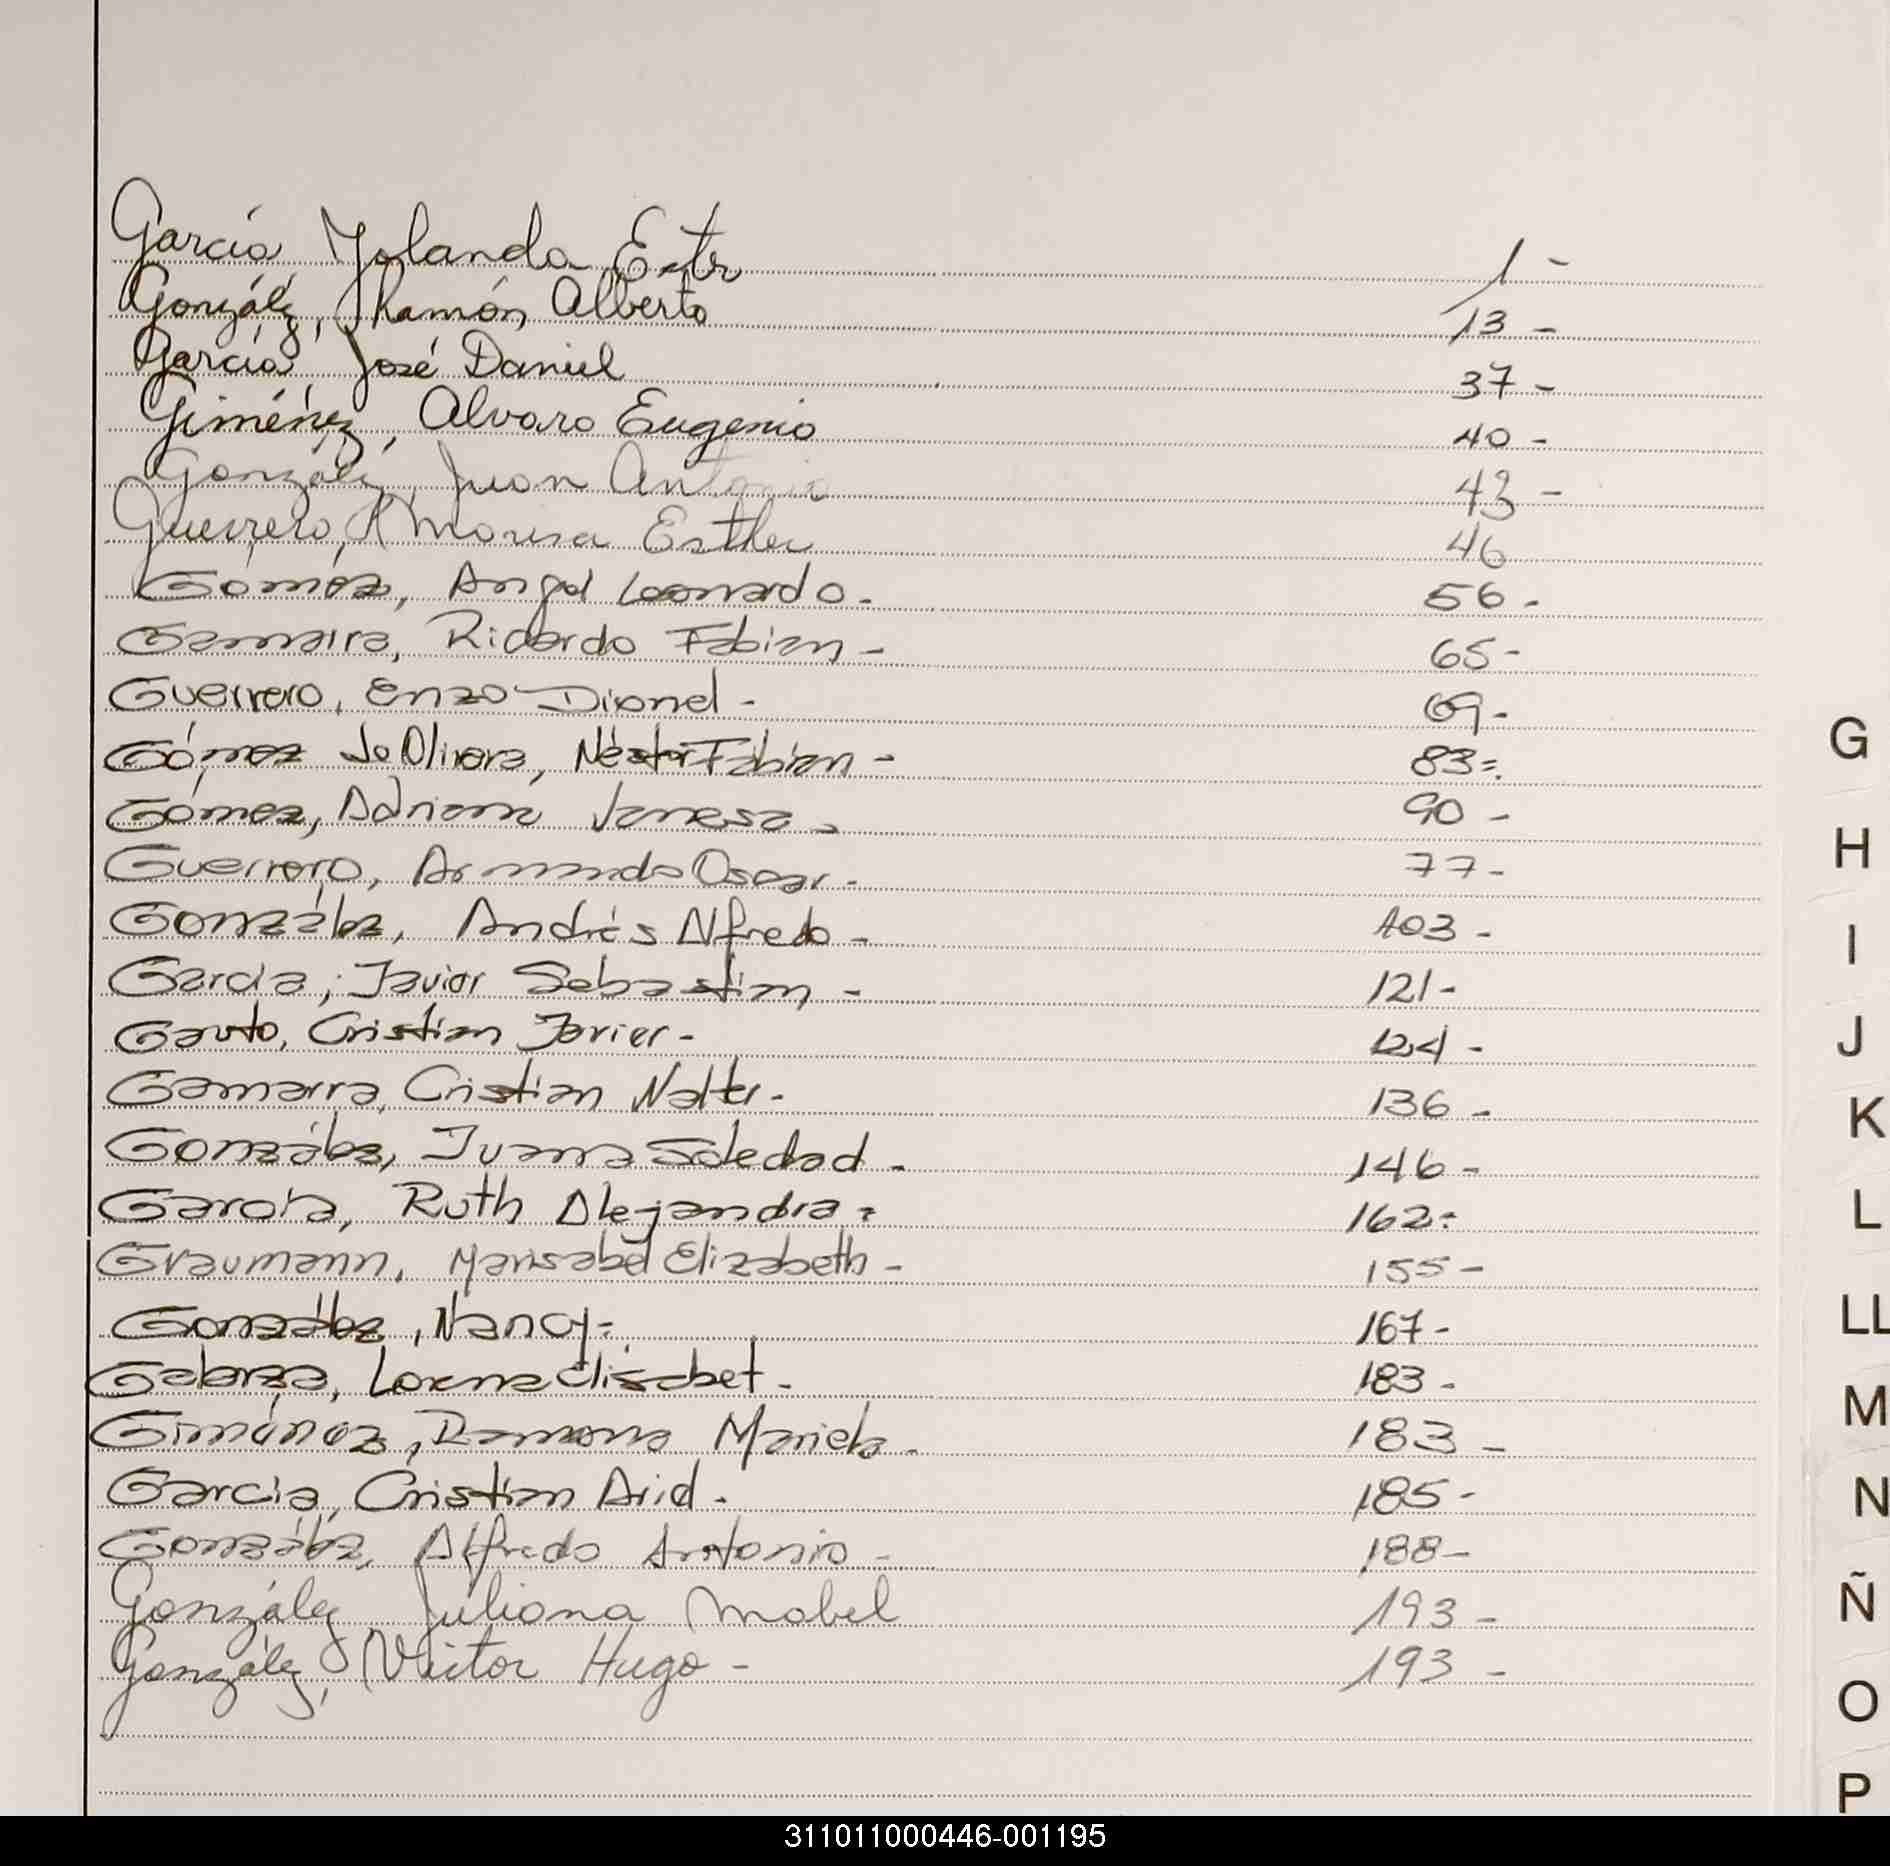 García Yolanda Ester 1-
González, Ramón Alberto 13-
García, José Daniel 37-
Giménez, Alvaro Eugenio 40-
González, Juan Antonio 43-
Guerrero, Marisa Esther 46
Gómez, Angel Leonardo. 56.
Gamarra, Ricardo Fabian- 65-
Guerrero, Enzo Dionel- 69-
Gómez de Olivera, Néstor Fabian- 83=.
Gómez, Adriana Vanesa- 90-
Guerrero, Armando Oscar. 77-
González, Andrés Alfredo- 103-
García, Javier Sebastian- 121-
Gauto, Cristian Javier- 124-
Gamarra, Cristian Walter- 136-
González, Juana Soledad- 146-
García, Ruth Alejandra= 162=
Graumann, Marisabel Elizabeth- 155-
González, Nancy= 167-
Lorena Elisabet- 183-
Giménez, Ramona Mariela- 183-
García, Cristian Ariel- 185-
González, Alfredo Antonio- 188-
González Juliana Mabel 193-
González, Victor Hugo- 193-
G
H
I
J
K
L
LL
M
N
Ñ
O
P
311011000446-001195